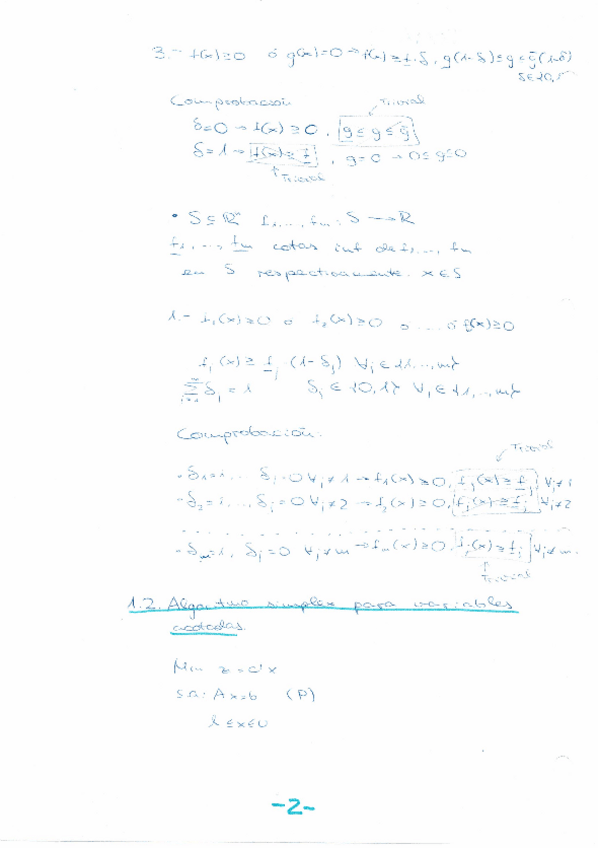 3.- f(x)≥0 ó g(x)=0 → f(x)≥f·δ, g(1-δ)≤g≤ḡ(1-δ)
δ∈{0,
Comprobación
Trivial
δ=0 → f(x)≥0, g≤g≤ḡ
δ=1 → f(x)≥f, g=0 → 0≤g≤0
Trivial
• S⊆ℝⁿ f₁,...,fm: S→ℝ
f₁,...,fm cotas inf de f₁,...,fm
en S respectivamente. x∈S
1.- f₁(x)≥0 ó f₂(x)≥0 ó ... ó f(x)≥0
fⱼ(x)≥fⱼ(1-δⱼ) ∀j∈{1,...,m}
Σδⱼ=1 δⱼ∈{0,1} ∀j∈{1,...,m}
Comprobación.
Trivial
-δ₁=1... δⱼ=0 ∀j≠1 → f₁(x)≥0, fⱼ(x)≥fⱼ ∀j≠1
-δ₂=1..., δⱼ=0 ∀j≠2 → f₂(x)≥0, fⱼ(x)≥fⱼ ∀j≠2
-δm=1, δⱼ=0 ∀j≠m → fm(x)≥0, fⱼ(x)≥fⱼ ∀j≠m.
Trivial
1.2. Algoritmo simplex para variables
acotadas.
Min z=c'x
s.a: Ax=b (P)
l≤x≤u
-2-